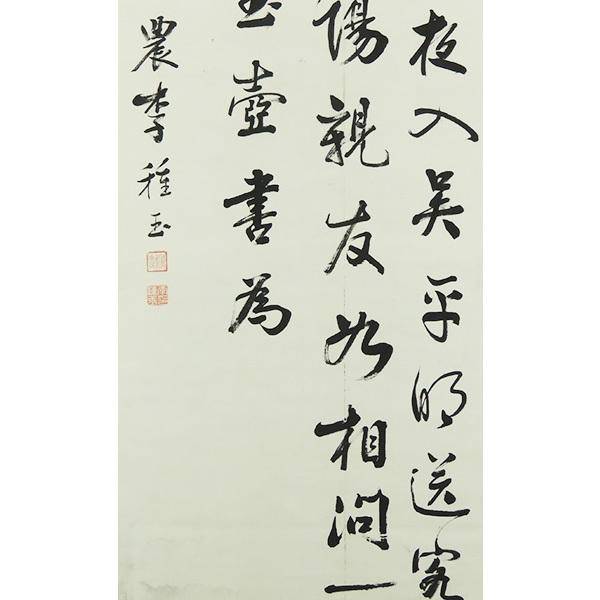 夜入吳平明送客
陽親友如相問一
玉壺書為
農李種玉